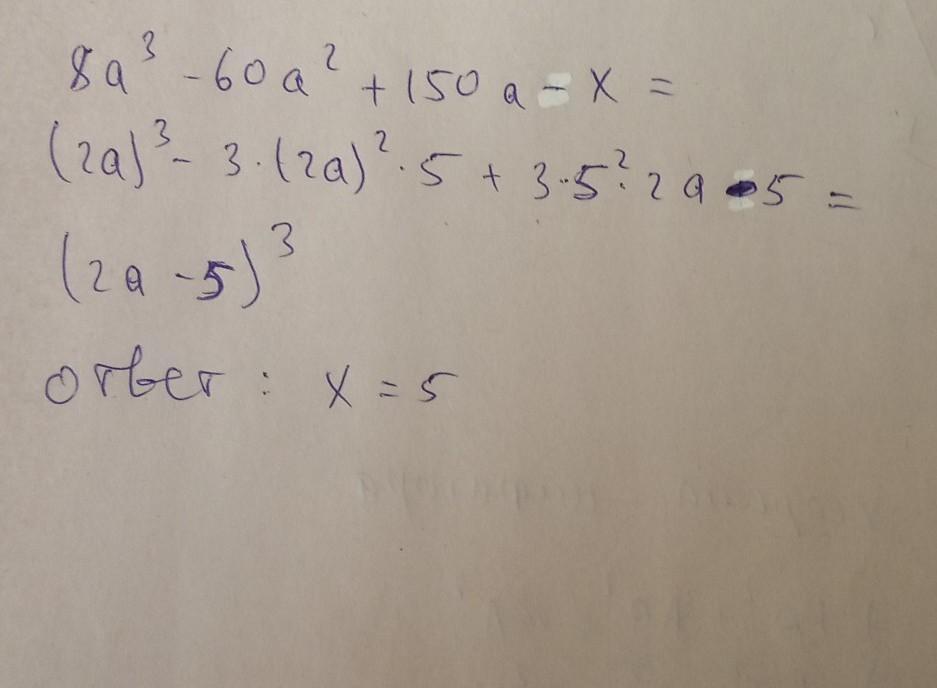 8a³ - 60a² + 150a - x =
(2a)³ - 3·(2a)²·5 + 3·5²·2a - 5 =
(2a - 5)³
ответ : x = 5